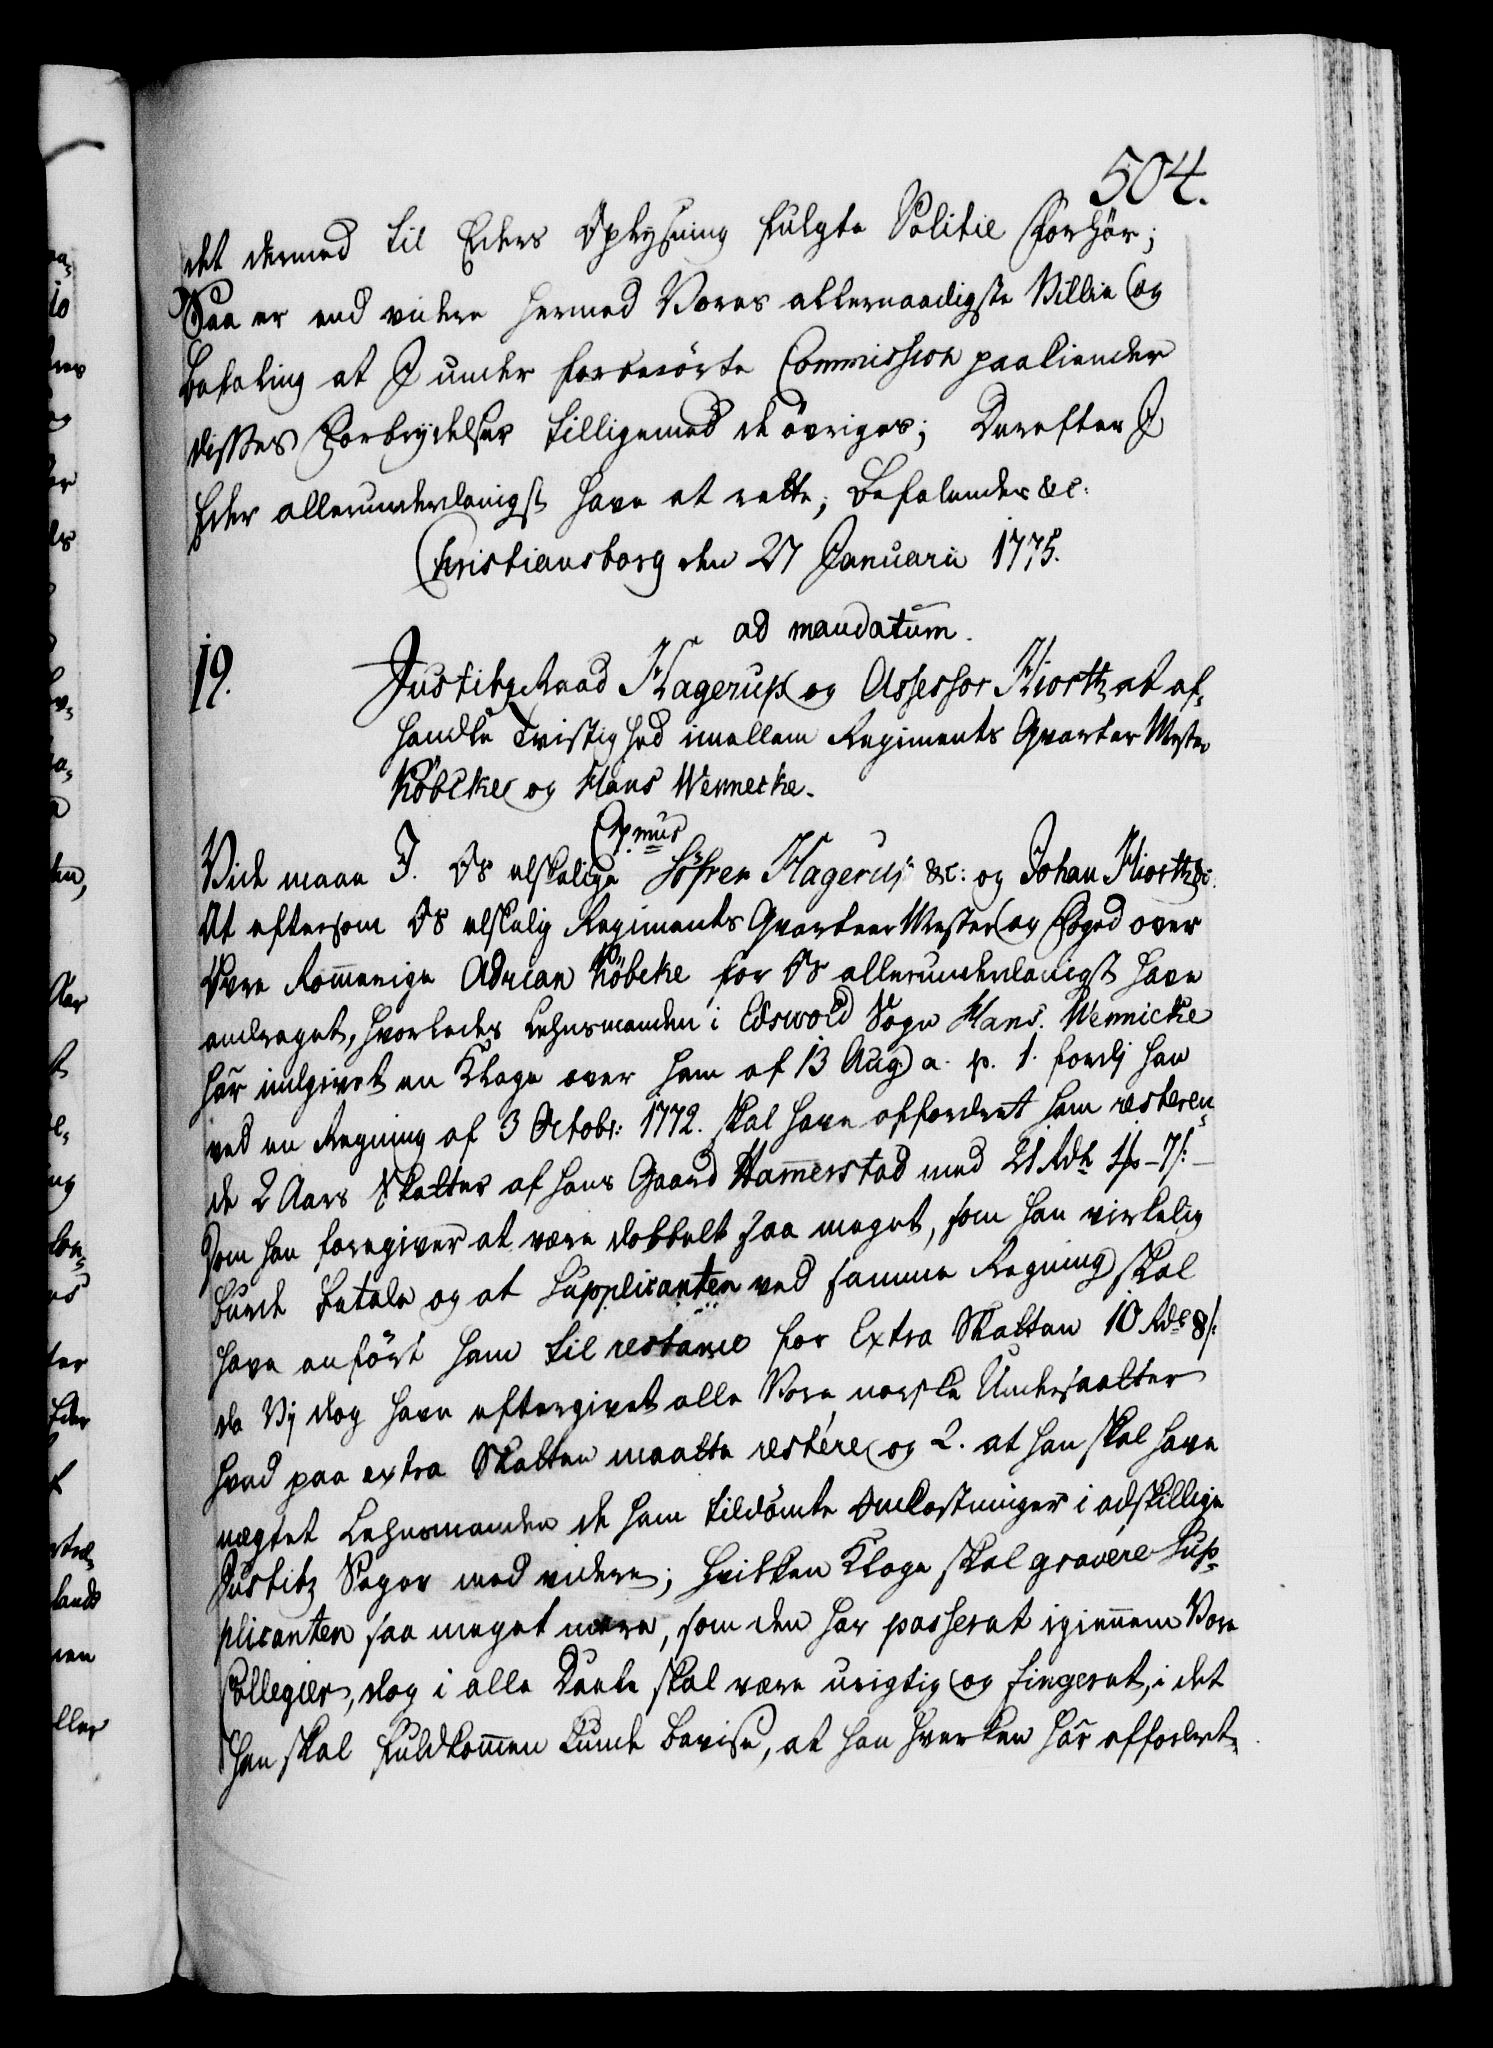 504.
det dermed til Eders Oplysning fulgte Politie Forhör;
Saa er end videre hermed Vores allernaadigste Villie og
Befaling at I under forberörte Commission paakiender
disses Forbrydelser tilligemed de övriges; Derefter I
Eder allerunderdanigst have at rette; Befalendes &c:
Christiansborg den 27 Januarii 1775.
ad mandatum.
19.
Justitz Raad Hagerup og Assessor Hiorth at af-
handle Tvistighed imellem Regiments Qvarter Mester
Köbcke og Hans Wennecke.
Cp.mus
Vide maae I. Os elskelige Söfren Hagerup &c: og Johan Hiorth &c.
At eftersom Os elskelig Regiments Qvarteer Mester og Foged over
Övre Rommerige Adrian Köbcke for Os allerunderdanigst have
andraget, hvorledes Lehnsmanden i Edswold Sogn Hans Wennicke
har indgivet en Klage over ham af 13 Aug a. p. 1. fordj han
ved en Regning af 3 Octobr: 1772. skal have affordret ham resteren-
de 2 Aars Skatter af hans Gaard Hamerstad med 21 Rdr 1 - 7 s: -
Som han foregiver at være dobbelt saa meget, som han virkelig
burde betale og at Supplicanten ved samme Regning skal
have anfört ham til restance for Extra Skatten 10 Rdr 8 s:
da Vj dog have eftergivet alle Vore norske Undersaatter
hvad paa extra Skatten maatte restére og 2. at han skal have
nægtet Lehnsmanden de ham tildömte Omkostninger i adskillige
Justitz Sager med videre; hvilken Klage skal gravére Sup-
plicanten saa meget mere, som den har passerat igiennem Vore
Collegier, dog i alle Deele skal være urigtig og fingerat, i det
Han skal fuldkommen kunde bevise, at han hverken har affordret